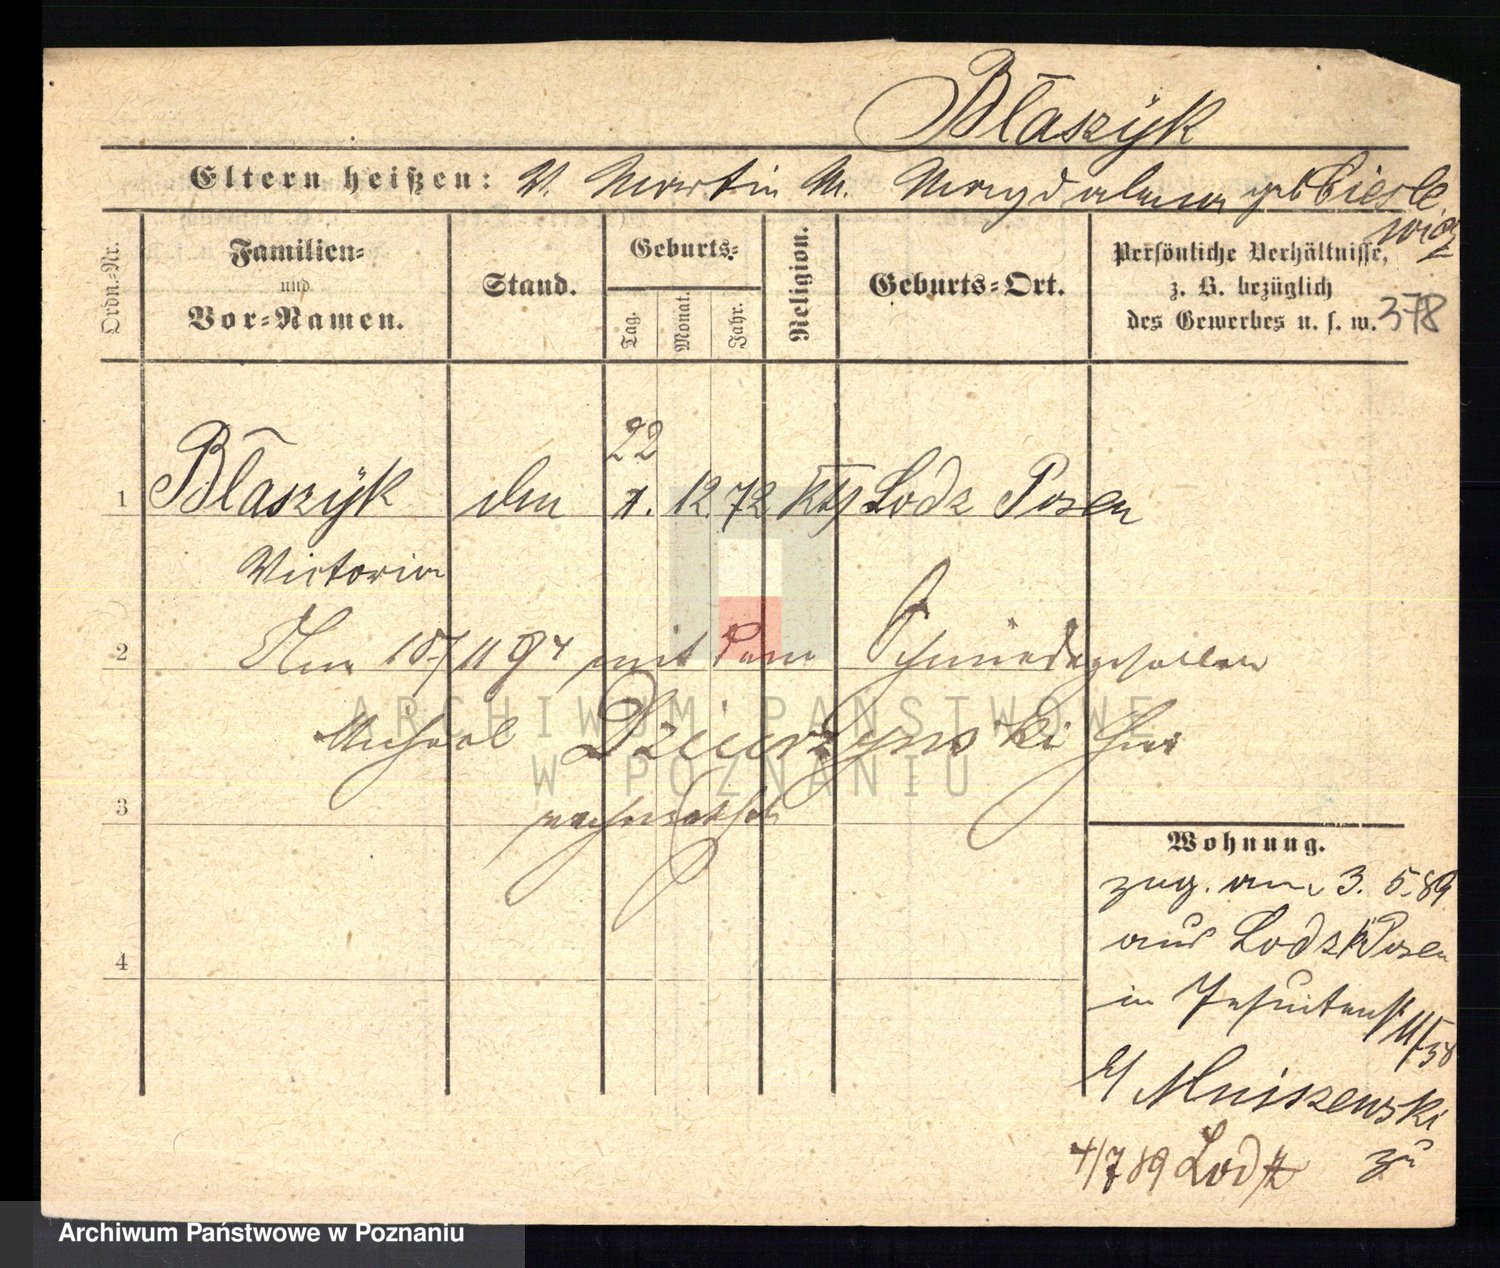 Błaszÿk
Eltern heißen: V. Martin M. Magdalena geb Ciesle
wicz
Ordn.-Nr.
Familien-
und
Vor-Namen.
Stand.
Geburts-
Tag.
Monat.
Jahr.
Religion.
Geburts-Ort.
Persönliche Verhältnisse,
z. B. bezüglich
des Gewerbes u. s. w.
378
22
1 Błaszÿk den 1. 12. 72 Kth Lodz Posen
Victoria
2 18/11 94 mit dem Schmiedegesellen
Michael Dzieurzynski hier
3
4
Wohnung.
zug. am 3. 5. 89
aus Lodz Posen
in Jesuitenst 11/
b/ Mniszewski
4/7 89 Lodz zu
ARCHIWUM PAŃSTWOWE
W POZNANIU
Archiwum Państwowe w Poznaniu